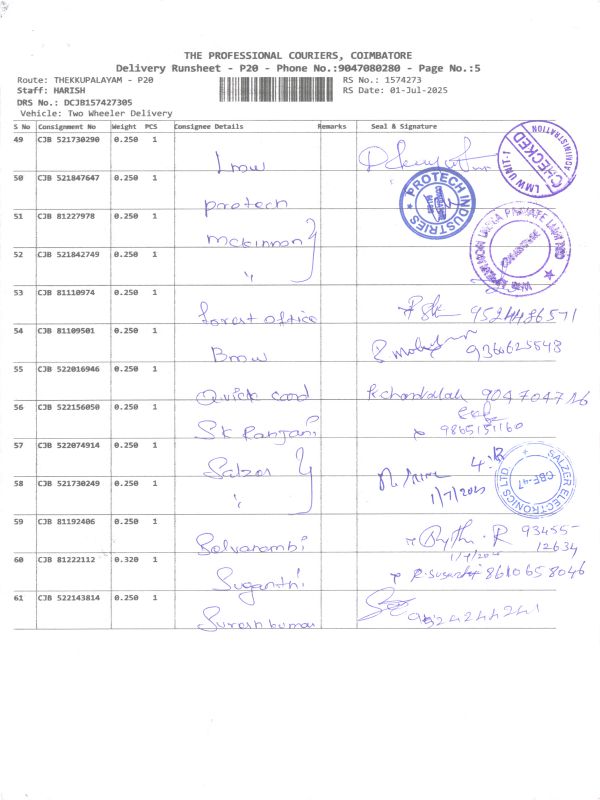 THE PROFESSIONAL COURIERS, COIMBATORE
Delivery Runsheet - P20 - Phone No.:9047080280 - Page No.:5
Route: THEKKUPALAYAM - P20 RS No.: 1574273
Staff: HARISH RS Date: 01-Jul-2025
DRS No.: DCJB157427305
Vehicle: Two Wheeler Delivery
S No Consignment No Weight PCS Consignee Details Remarks Seal & Signature
49 CJB 521730290 0.250 1 Lmw
LMW UNIT-1 CHECKED ADMINISTRATION
50 CJB 521847647 0.250 1 protech
PROTECH INDUSTRIES
51 CJB 81227978 0.250 1 mckinnon
52 CJB 521842749 0.250 1 "
53 CJB 81110974 0.250 1 forest office 9524486571
54 CJB 81109501 0.250 1 Bmw 9360625548
55 CJB 522016946 0.250 1 Quick card
56 CJB 522156050 0.250 1 SK Ranjani 9865151160
57 CJB 522074914 0.250 1 Salzer
SALZER ELECTRONICS LTD CBE-47
58 CJB 521730249 0.250 1 " 1/7/2025
59 CJB 81192406 0.250 1 93455-
12634
60 CJB 81222112 0.320 1 Suganthi 8610658046
61 CJB 522143814 0.250 1 Sureshkumar